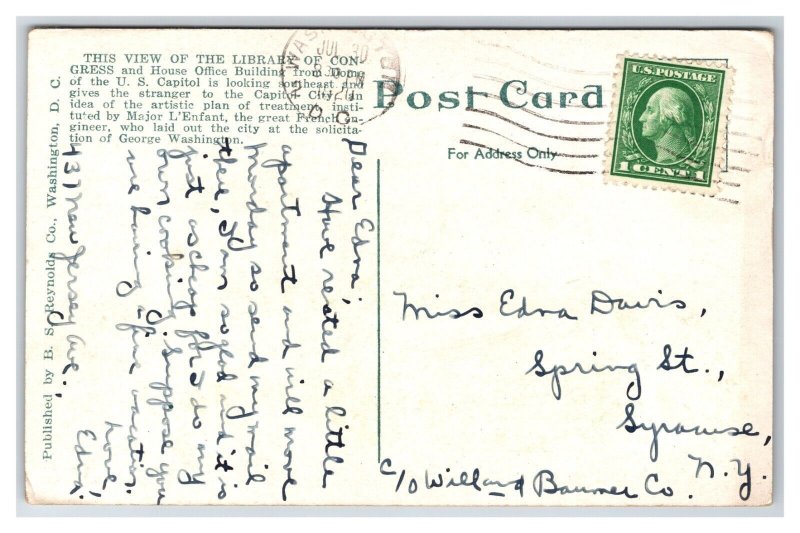 THIS VIEW OF THE LIBRARY OF CON-
GRESS and House Office Building from Dome
of the U. S. Capitol is looking southeast and
gives the stranger to the Capitol City an
idea of the artistic plan of treatment insti-
tuted by Major L'Enfant, the great French en-
gineer, who laid out the city at the solicita-
tion of George Washington.
Published by B. S. Reynolds Co., Washington, D. C.
WASHINGTON
JUL 30
D. C.
Post Card
For Address Only
U.S. POSTAGE
1 CENT 1
Dear Edna;
Have rented a little
apartment and will move
Monday so send my mail
there, I am so glad and it is
just as cheap for I do my
own cooking. Suppose you
are having a fine vacation.
Love,
Edna.
437 New Jersey Ave.,
Miss Edna Davis,
Spring St.,
Syracuse,
N.Y.
c/o Willand Baumer Co.